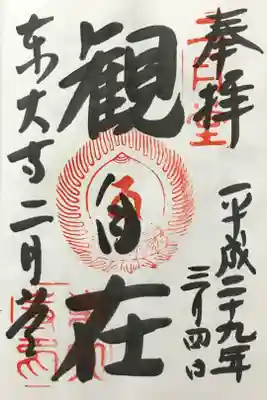 奉拝
二月堂
平成二十九年
三月四日
観自在
東大寺二月堂